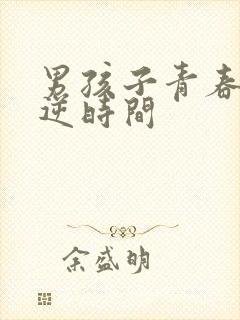 男孩子青春
逆時間
余盛明